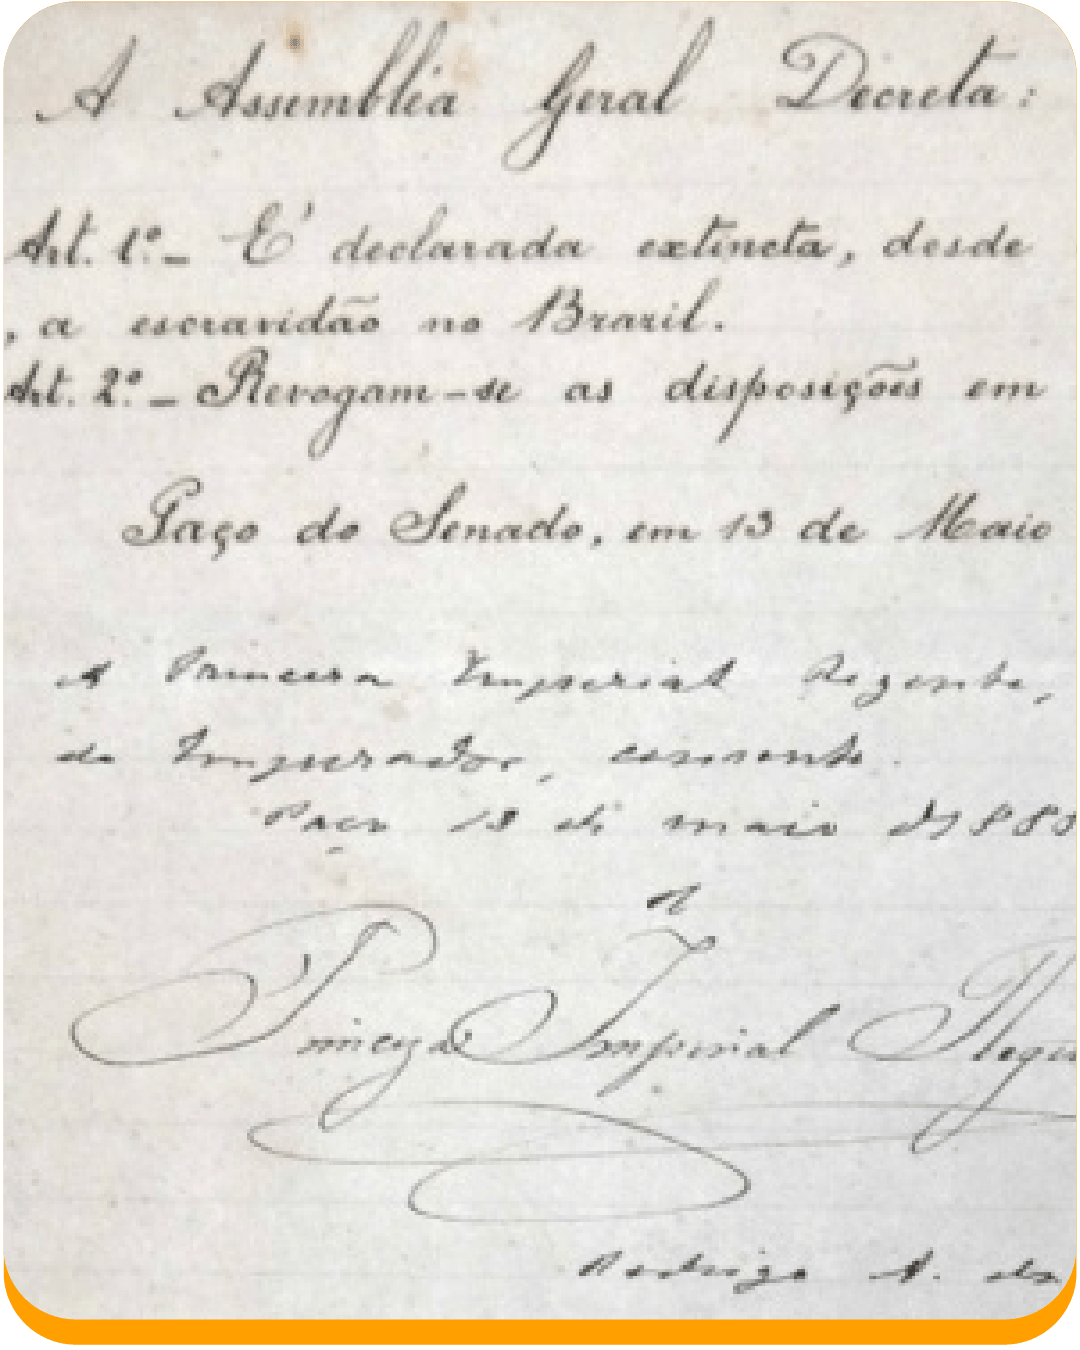 A Assembléa Geral Decreta:
Art. 1º. - É declarada extincta, desde
, a escravidão no Brazil.
Art. 2º. - Revogam-se as disposições em
Paço do Senado, em 13 de Maio
A Princesa Imperial Regente,
do Imperador, consente.
Paço 13 de maio d 188
A
Princeza Imperial Rege
Rodrigo A. da